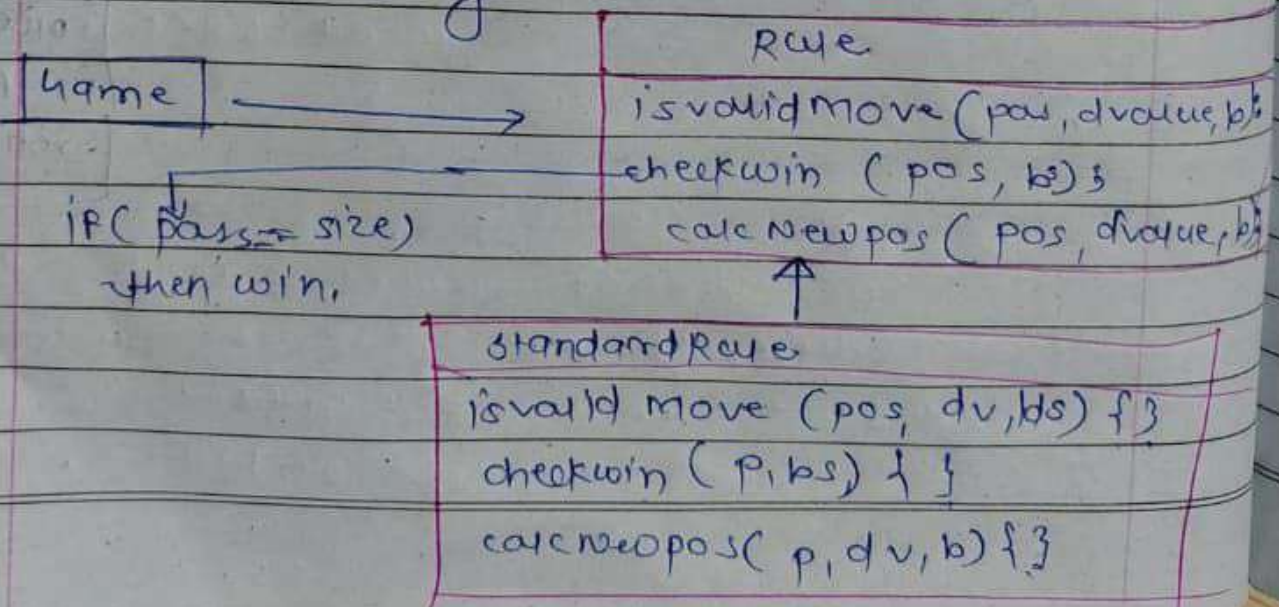 Rule
Game
isvalidmove (pos, dvalue, b);
checkwin (pos, bs);
if( pos == size)
calcNewpos( pos, dvalue, b);
then win.
standardRule
isvalid move (pos, dv, bs) {}
checkwin ( p, bs) { }
calcNewpos( p, dv, b) {}